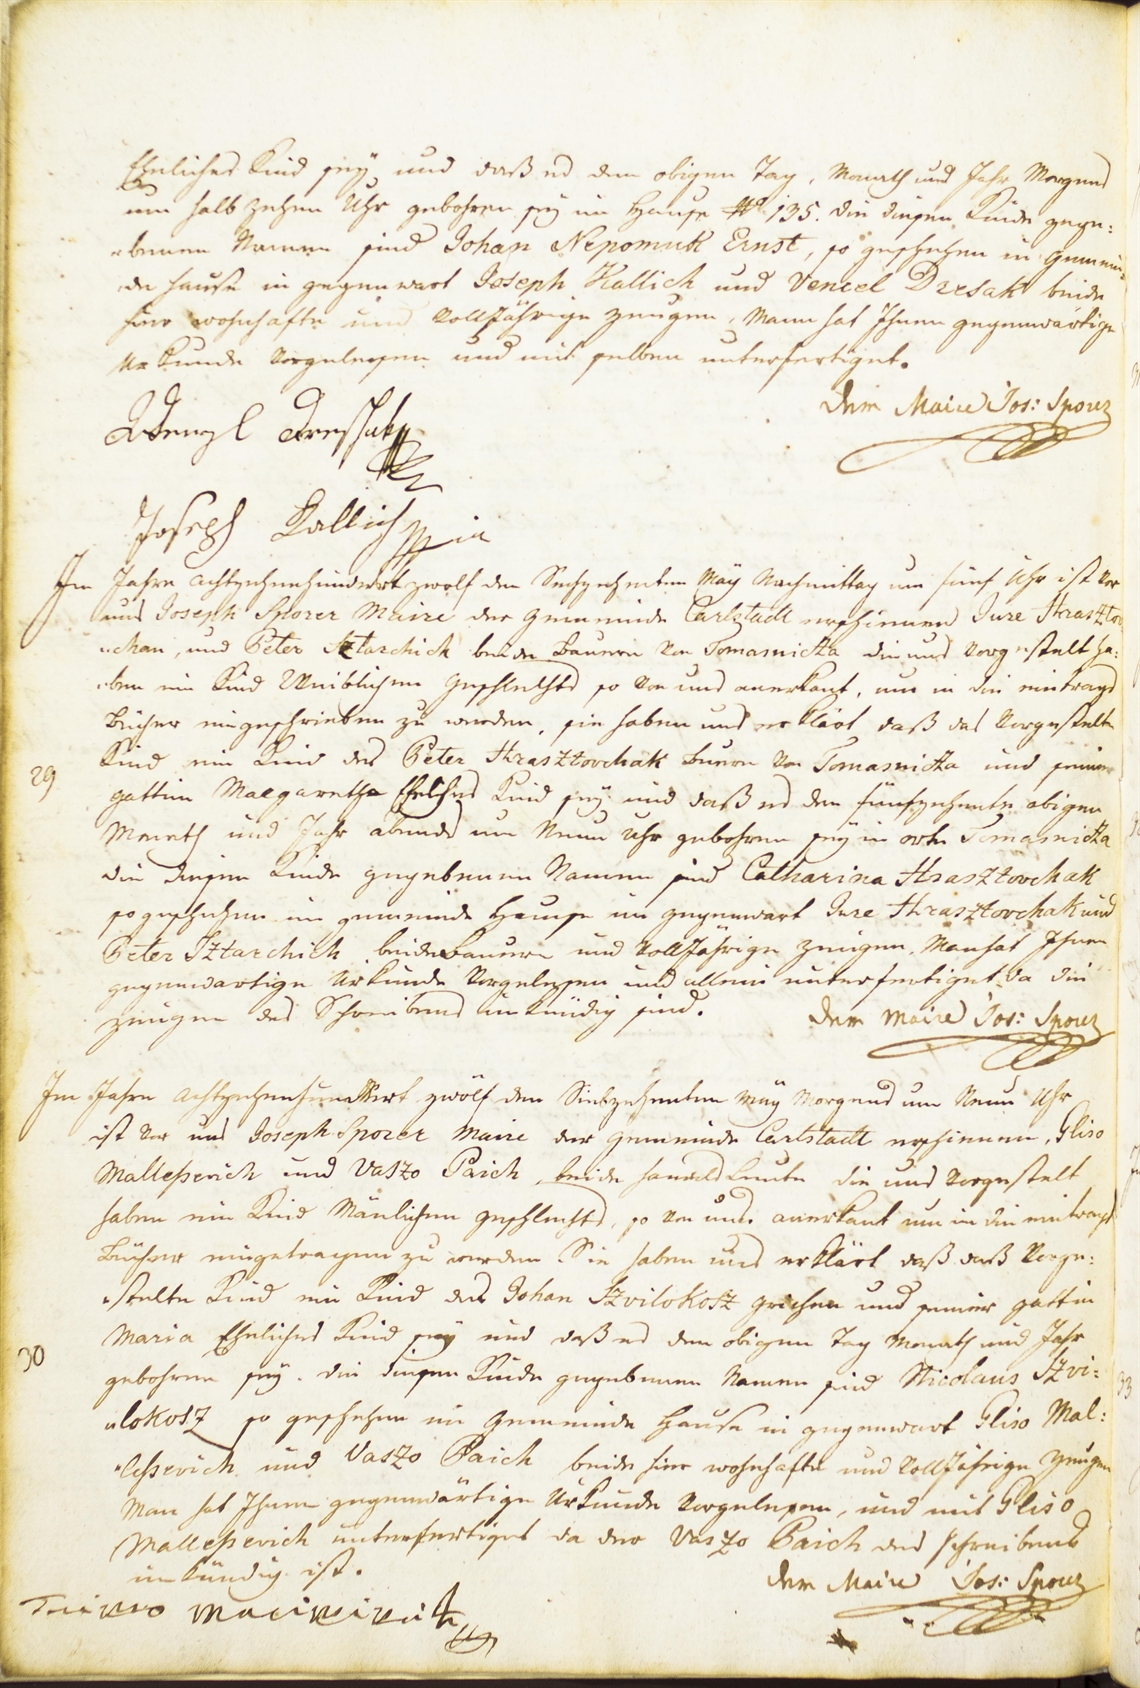 Ehnliches Kind seÿ und daß es dem obigen Tag, Monath und Jahr Morgens
um halb zehen Uhr gebohren seÿ im Hause No 135. die diesem Kinde gege:
=benen Namen sind Johan Nepomuk Ernst, so geschehen in Gemein=
=de Hause in gegenwart Joseph Kallich und Vencel Dresak beide
hier wohnhafte und Volljährige Zeugen, Mann hat Ihnen gegenwärtige
Urkunde Vorgelesen und mit selben unterfertiget.
Der Maire Jos: Sporer
Wenzl Dresshak
Joseph Kallich
Im Jahre achtzehenhundert zwolf den Sechzehenten Maÿ Nachmittag um fünf Uhr ist Vor
uns Joseph Sporer Maire der Gemeinde Carlstadt erschienen Jure Hrasztov
=chan, und Peter Sztarchich beide Bauern Von Tomasnicza die uns Vorgestelt ha:
=ben ein Kind Weiblichen Geschlechts so Von uns anerkant, um in die eintrags
Bücher eingeschrieben zu werden, sie haben uns erklärt daß das Vorgestelte
Kind ein Kind des Peter Hrasztovchak Bauern Von Tomasnicza und seiner
29
gattin Margaretha Ehliches Kind seÿ und daß es den fünfzehente obigen
Monath und Jahr abends um Neun Uhr gebohren seÿ in orte Tomasnicza
die diesem Kinde gegebenen Namen sind Catharina Hrasztovchak
so geschehen im gemeinde Hause in gegenwart Jure Hrasztovchak und
Peter Sztarchich beide Bauern und Volljährige Zeugen, Man hat Ihnen
gegenwärtige Urkunde Vorgelesen und allein unterfertiget da die
zeugen des Schreibens unkündig sind.
Der Maire Jos: Sporer
Im Jahre achtzehenhundert zwölf den Siebzehenten Maÿ Morgens um Neun Uhr
ist Vor uns Joseph Sporer Maire der Gemeinde Carlstadt erschienen, Gliso
Malleßevich und Vaszo Paich beide handels Leute die uns Vorgestelt
haben ein Kind Mänlichen geschlechts, so Von uns anerkant um in die eintrags
Bücher eingetragen zu werden. Sie haben uns erklärt daß daß Vorge:
=stelte Kind ein Kind des Johan Szvilokosz griechen und seiner gattin
Maria Ehnliches Kind seÿ und daß es den obigen Tag Monath und Jahr
30
gebohren seÿ. die diesem Kinde gegebenen Namen sind Nicolaus Szvi:
=lokosz so geschehen im Gemeinde Hause in gegenwart Gliso Mal:
=leßevich und Vaszo Paich beide hier wohnhafte und Volljährige Zeugen
Man hat Ihnen gegenwärtige Urkunde Vorgelesen, und mit Gliso
Malleßevich unterfertiget da der Vaszo Paich des schreibens
unkündig ist.
Der Maire Jos: Sporer